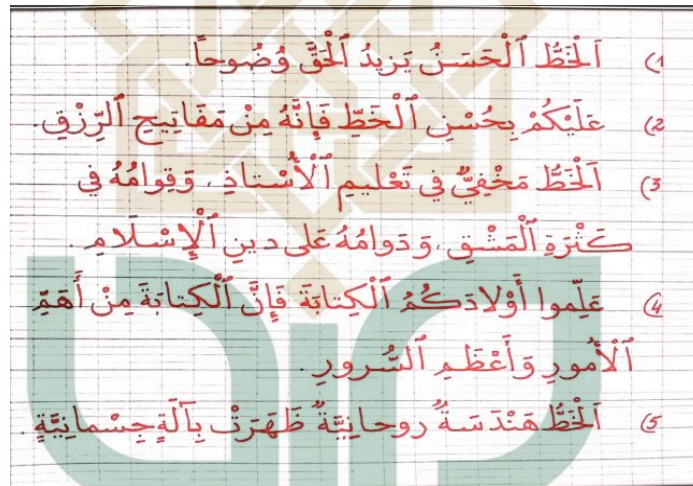 1) اَلْخَطُّ ٱلْحَسَنُ يَزِيدُ ٱلْحَقَّ وُضُوحاً.
2) عَلَيْكُمْ بِحُسْنِ ٱلْخَطِّ فَإِنَّهُ مِنْ مَفَاتِيحِ ٱلرِّزْقِ.
3) اَلْخَطُّ مَخْفِيٌّ فِي تَعْلِيمِ ٱلْأُسْتَاذِ، وَقِوامُهُ فِي
كَثْرَةِ ٱلْمَشْقِ، وَدَوامُهُ عَلى دِينِ ٱلْإِسْلَامِ.
4) عَلِّموا أَوْلادَكُمُ ٱلْكِتابَةَ فَإِنَّ ٱلْكِتابَةَ مِنْ أَهَمِّ
ٱلْأُمورِ وَأَعْظَمِ ٱلسُّرورِ.
5) اَلْخَطُّ هَنْدَسَةٌ روحانِيَّةٌ ظَهَرَتْ بِآلَةٍ جِسْمانِيَّةٍ.